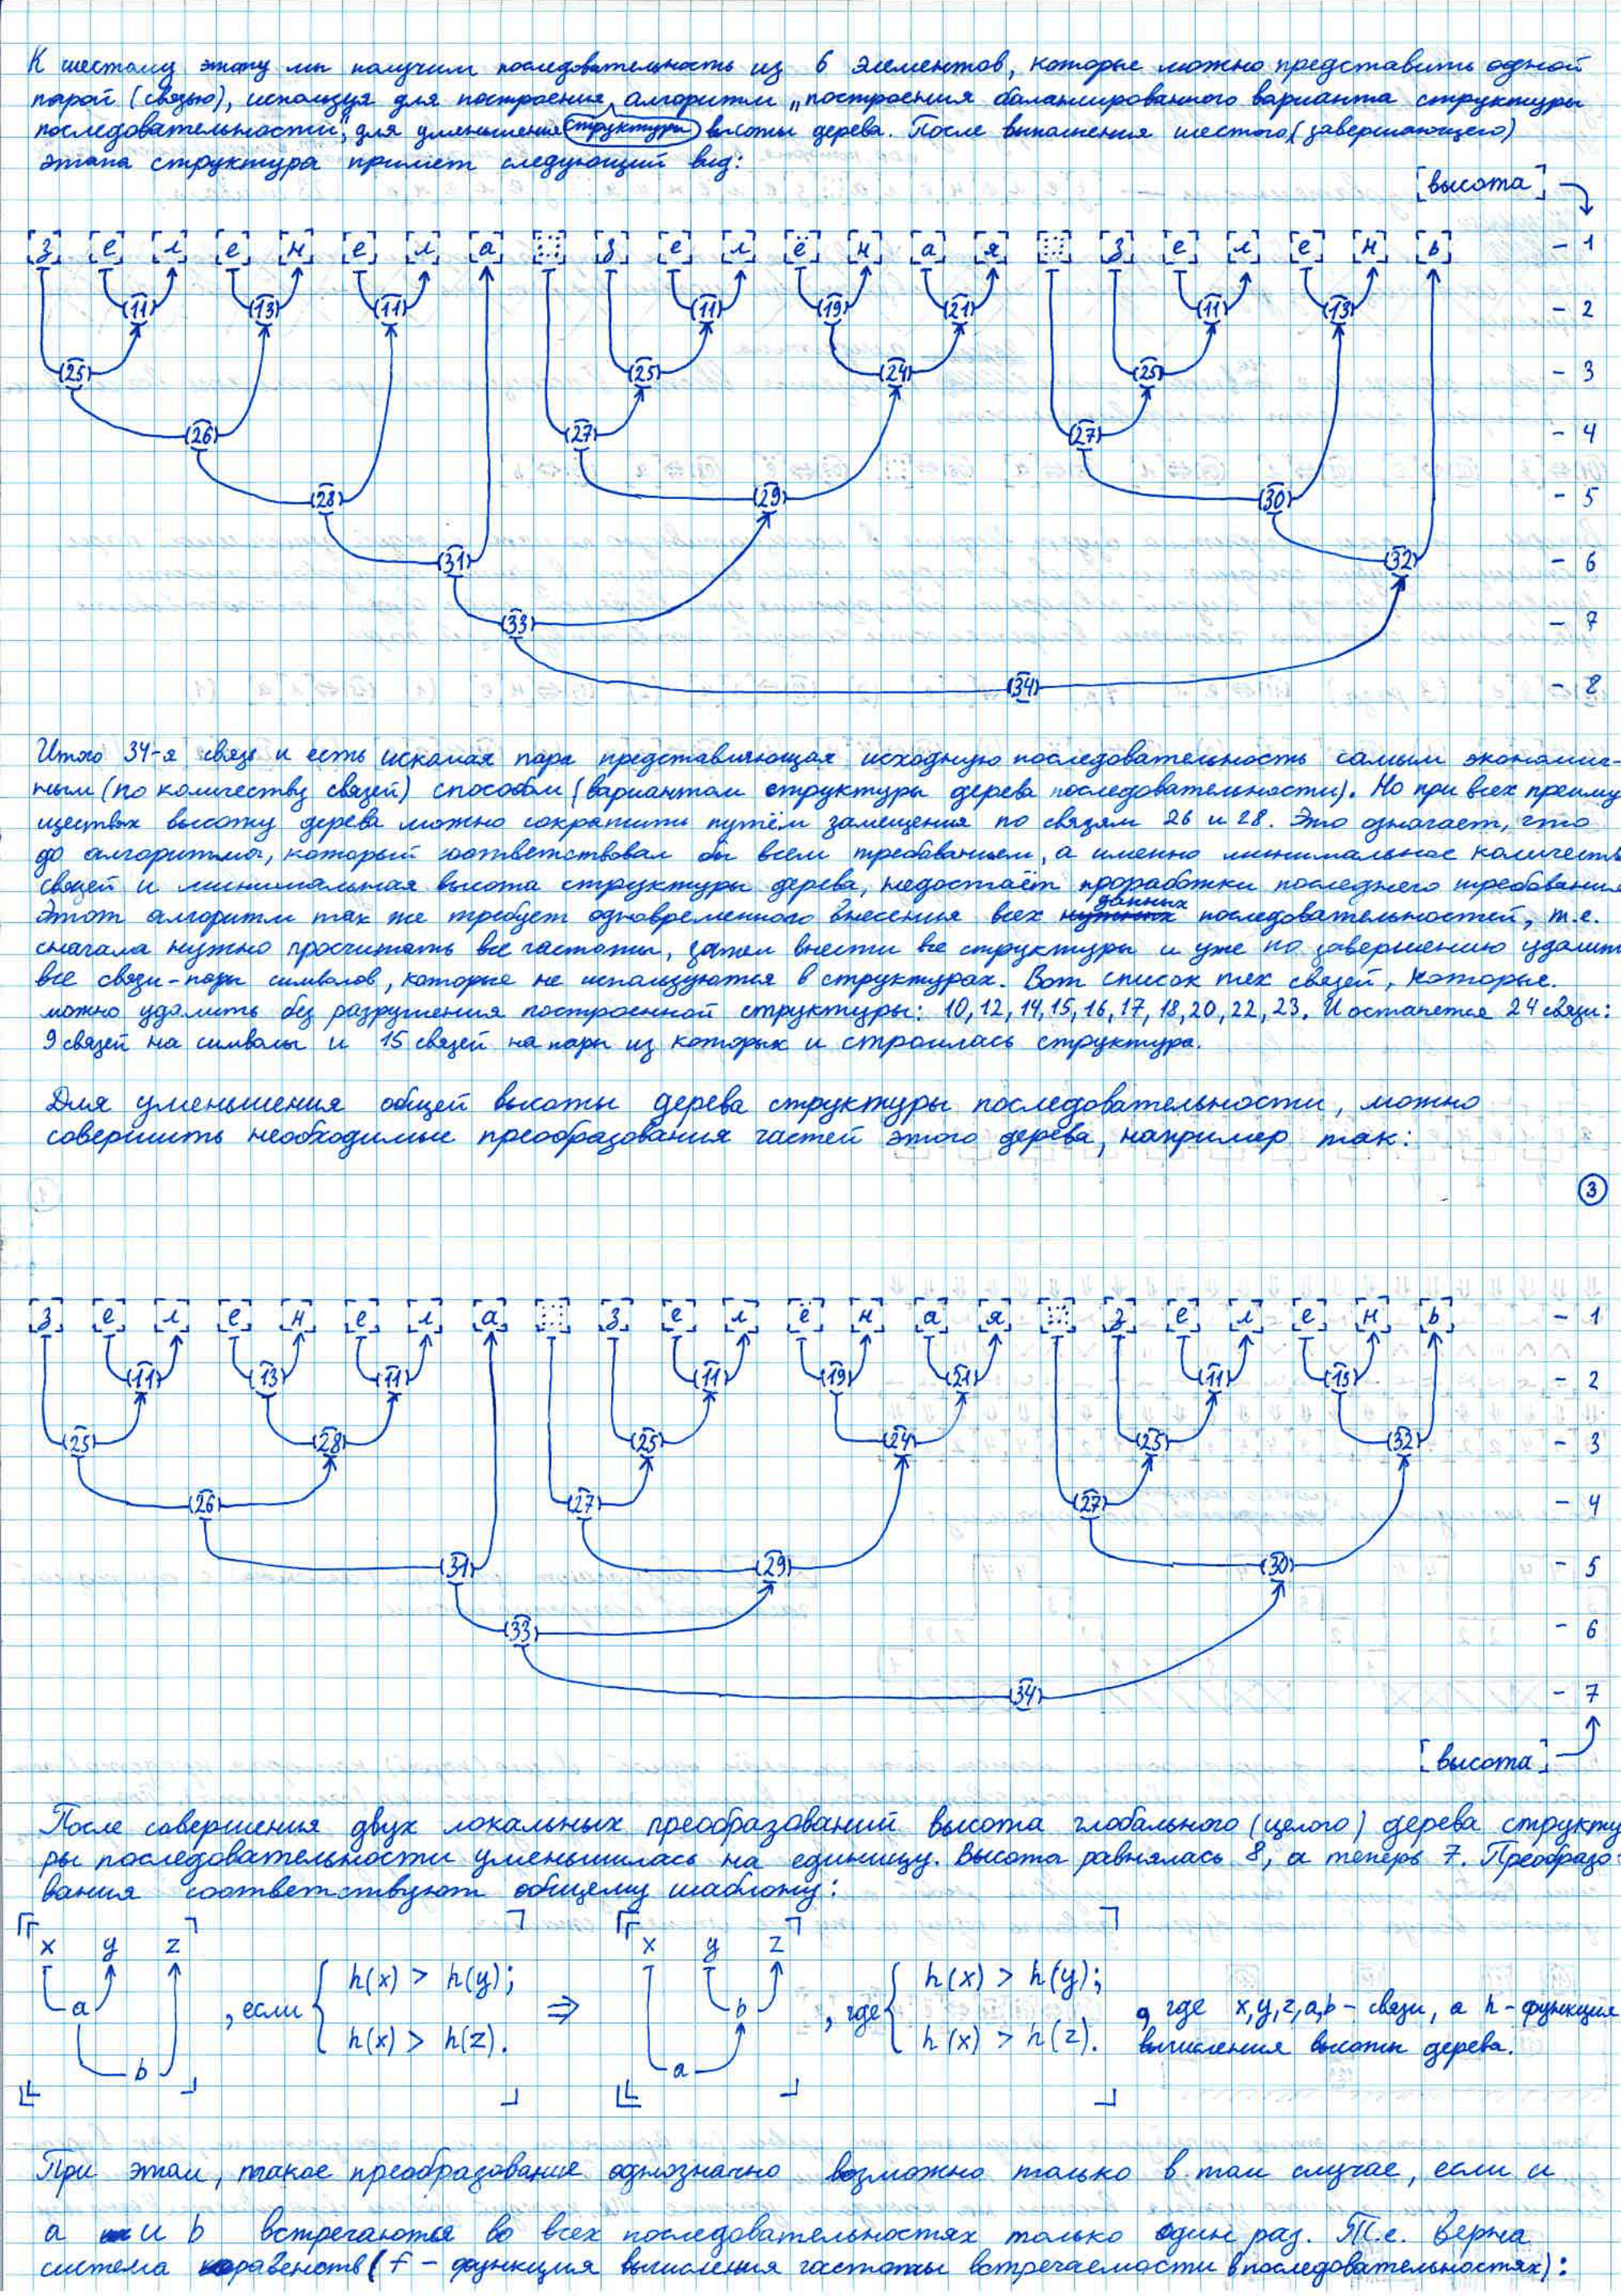 К шестому этапу мы получим последовательность из 6 элементов, которые можно представить одной
парой (связью), используя для построения алгоритм „построения балансированного варианта структуры
последовательности", для уменьшения структуры высоты дерева. После выполнения шестого (завершающего)
этапа структура примет следующий вид:
[высота]
[з] [е] [л] [е] [н] [е] [л] [а] [::::] [з] [е] [л] [ё] [н] [а] [я] [::::] [з] [е] [л] [е] [н] [ь] - 1
(11) (13) (11) (11) (19) (21) (11) (13) - 2
(25) (25) (24) (25) - 3
(26) (27) (27) - 4
(28) (29) (30) - 5
(31) (32) - 6
(33) - 7
(34) - 8
Итого 34-я связь и есть искомая пара представляющая исходную последовательность самым экономич-
ным (по количеству связей) способом (вариантом структуры дерева последовательности). Но при всех преиму
ществах высоту дерева можно сократить путём замещения по связям 26 и 28. Это означает, что
до алгоритма, который соответствовал бы всем требованием, а именно минимальное количеств
связей и минимальная высота структуры дерева, недостаёт проработки последнего требования
Этот алгоритм так же требует одновременного внесения всех данных последовательностей, т.е.
сначала нужно просчитать все частоты, затем внести все структуры и уже по завершению удалит
все связи-пары символов, которые не используются в структурах. Вот список тех связей, которые
можно удалить без разрушения построенной структуры: 10, 12, 14, 15, 16, 17, 18, 20, 22, 23. И останется 24 связи:
9 связей на символы и 15 связей на пары из которых и строилась структура.
Для уменьшения общей высоты дерева структуры последовательности, можно
совершить необходимые преобразования частей этого дерева, например так:
3
[з] [е] [л] [е] [н] [е] [л] [а] [::::] [з] [е] [л] [ё] [н] [а] [я] [::::] [з] [е] [л] [е] [н] [ь] - 1
(11) (13) (11) (11) (19) (21) (11) (13) - 2
(25) (28) (25) (24) (25) (32) - 3
(26) (27) (27) - 4
(31) (29) (30) - 5
(33) - 6
(34) - 7
[высота]
После совершения двух локальных преобразований высота глобального (целого) дерева структу
ры последовательности уменьшилась на единицу. Высота равнялась 8, а теперь 7. Преобразо-
вания соответствуют общему шаблону:
x y z x y z
h(x) > h(y); h(x) > h(y);
a , если ⇒ b , где , где x, y, z, a, b - связи, а h - функция
h(x) > h(z). h(x) > h(z). вычисления высоты дерева.
b a
При этом, такое преобразование однозначно возможно только в том случае, если и
a и b встречаются во всех последовательностях только один раз. Т.е. верна
система неравенств (f - функция вычисления частоты встречаемости в последовательностях):